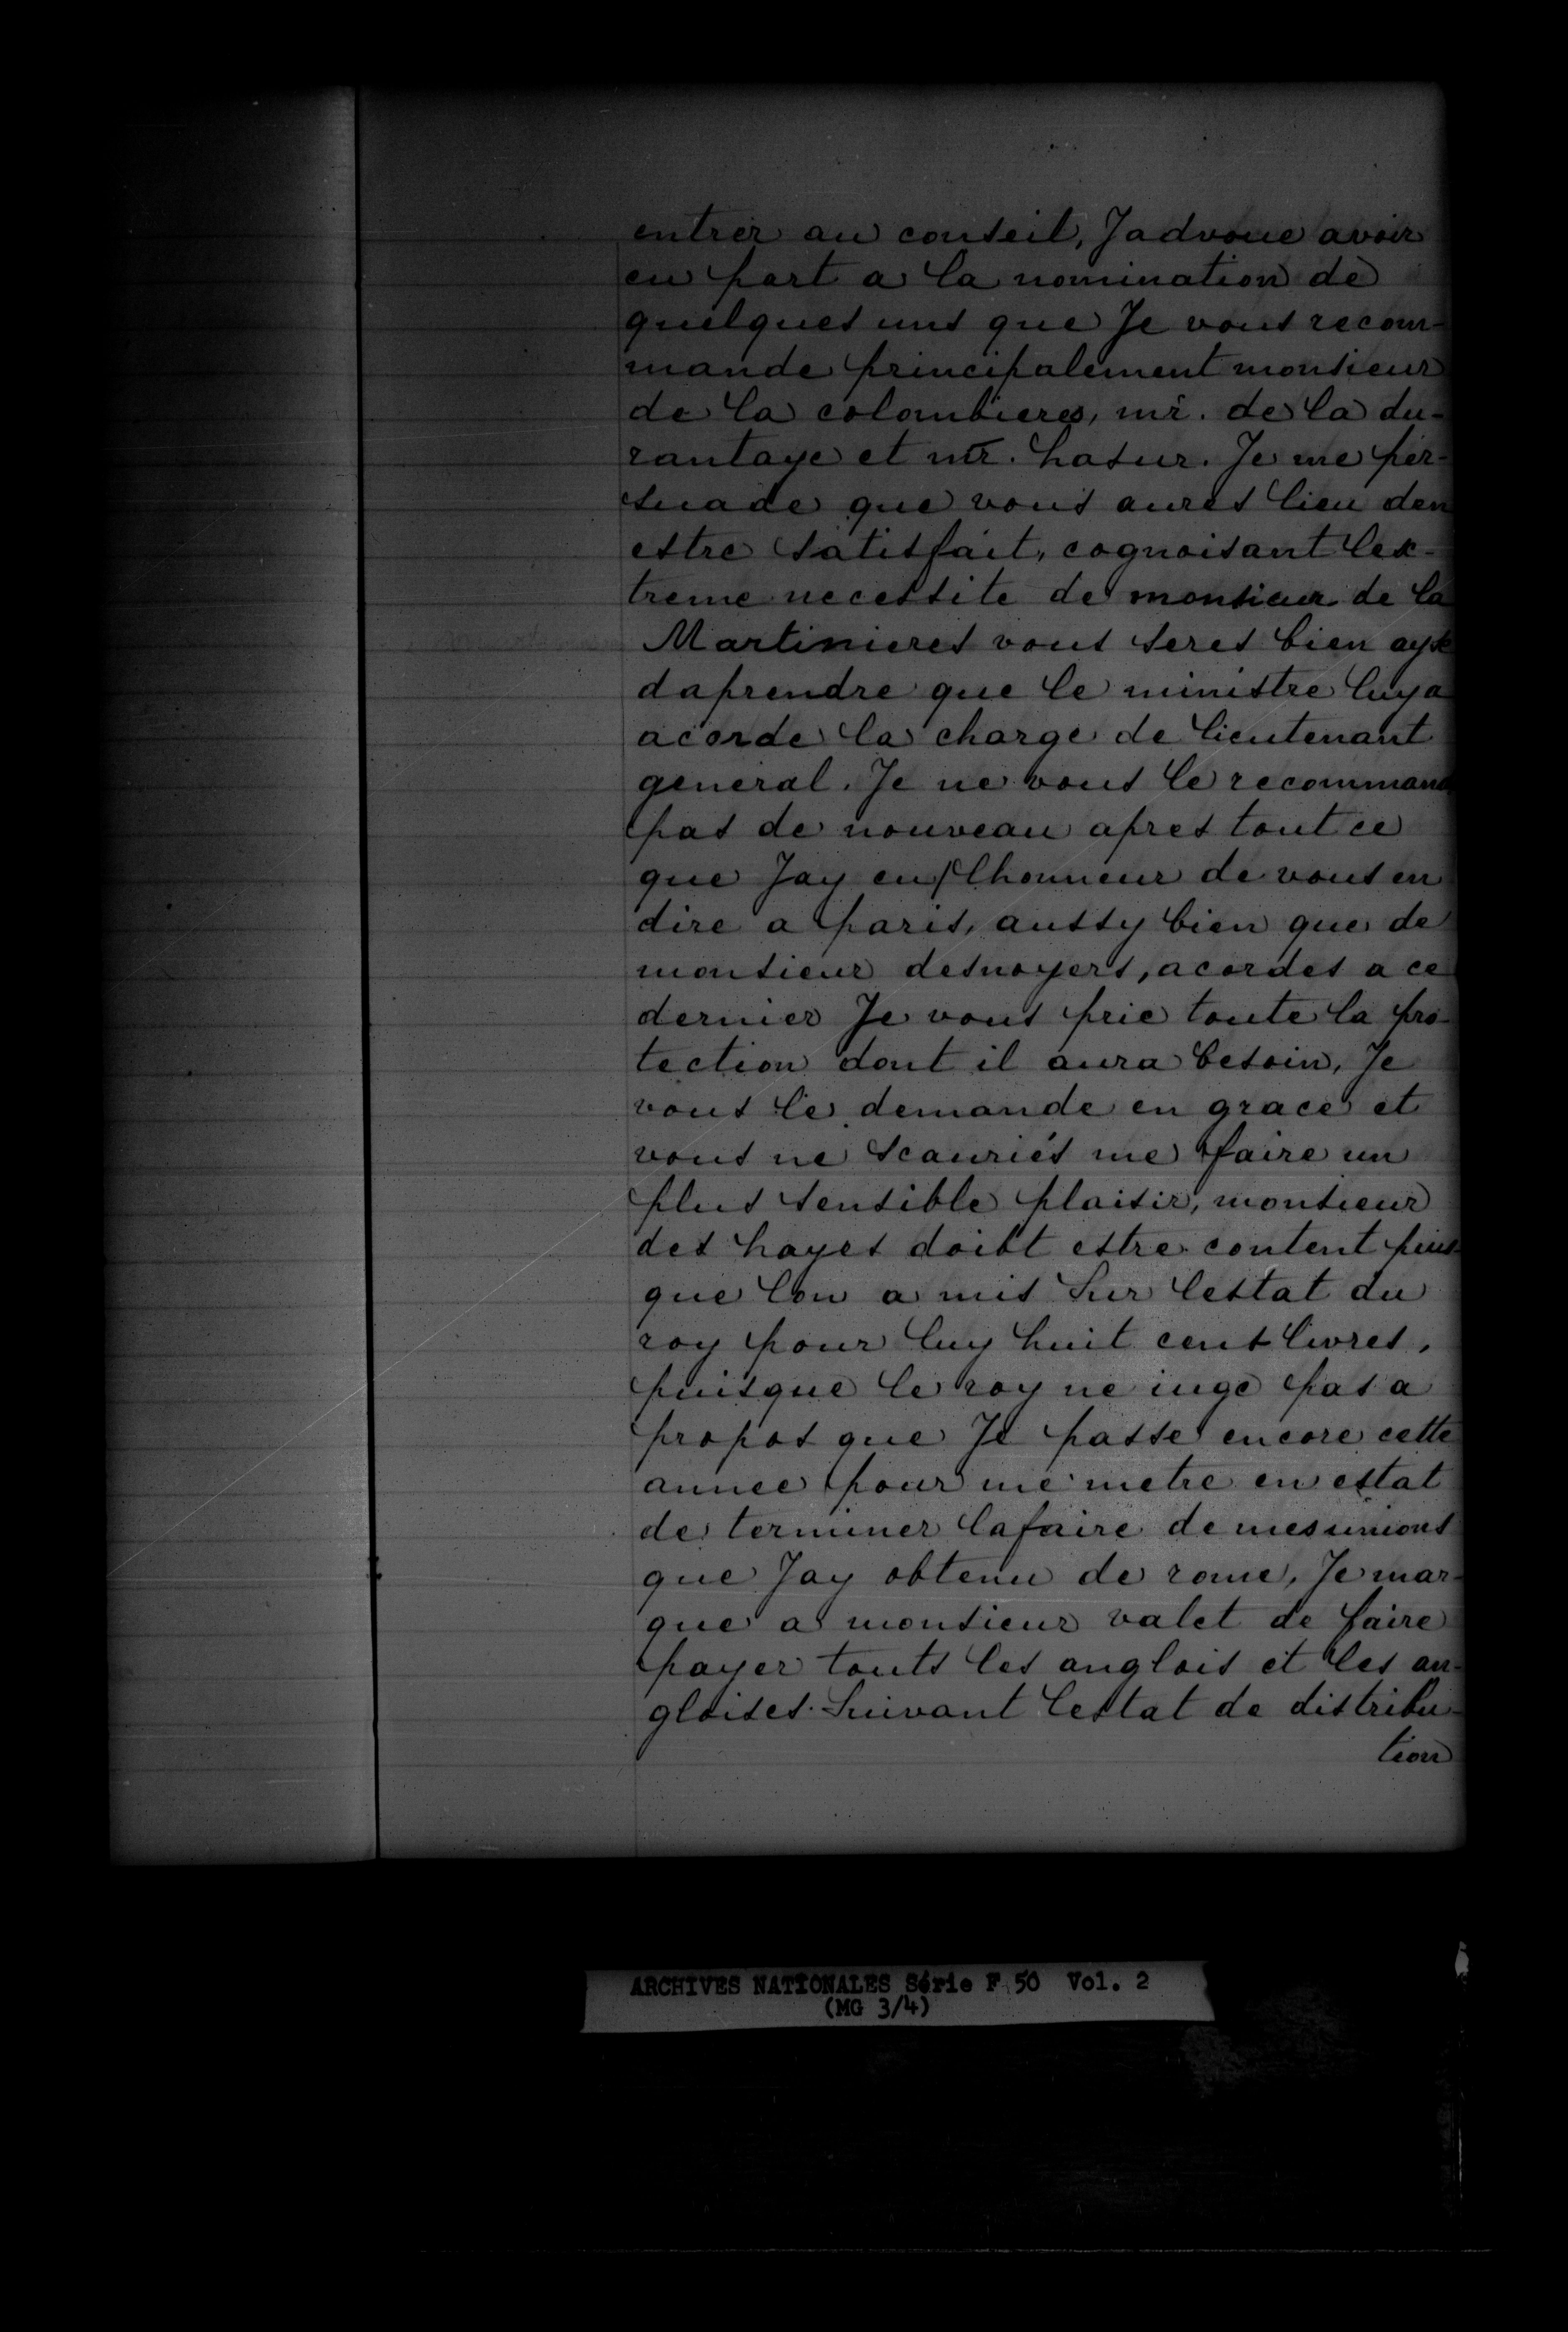 entrer au conseil, Jadvoue avoir
eu part a la nomination de
quelques uns que Je vous recom-
mande principalement monsieur
de la colombieres, mr. de la du-
rantaye et mr. hasur. Je me per-
suade que vous aures lieu den
estre satisfait, cognoisant lex-
treme necessite de monsieur de la
Martinieres vous seres bien ayse
daprendre que le ministre luy a
acorde la charge de lieutenant
general. Je ne vous le recommande
pas de nouveau apres tout ce
que Jay eu lhonneur de vous en
dire a paris, aussy bien que de
monsieur desnoyers, acordes a ce
dernier Je vous prie toute la pro-
tection dont il aura besoin, Je
vous le demande en grace et
vous ne scauriés me faire un
plus sensible plaisir, monsieur
des hayes doibt estre content puis-
que lon a mis sur lestat du
roy pour luy huit cent livres,
puisque le roy ne iuge pas a
propos que Je passe encore cette
annee pour me metre en estat
de terminer lafaire de mes unions
que Jay obtenu de rome, Je mar-
que a monsieur valet de faire
payer touts les anglois et les an-
gloises suivant lestat de distribu-
tion
ARCHIVES NATIONALES Série F 50 Vol. 2
(MG 3/4)